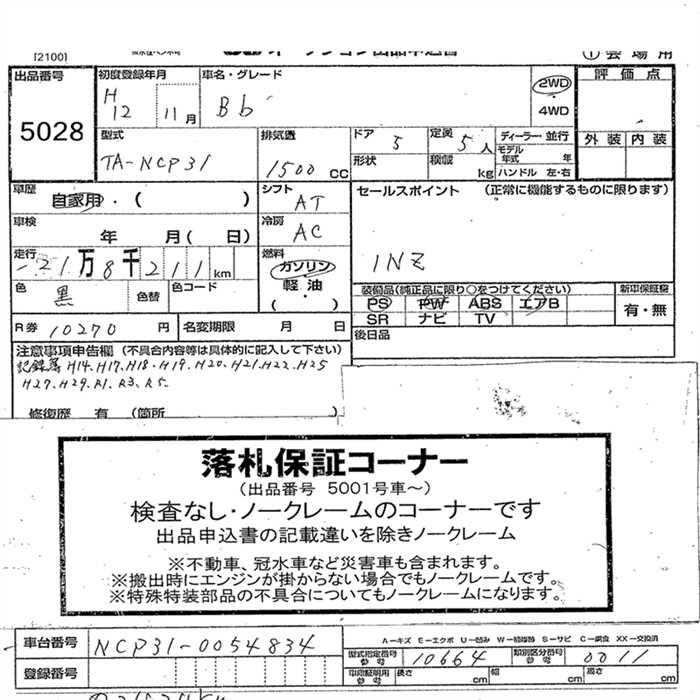 [2100]
① 会場用
出品番号 初度登録年月 車名・グレード 評価点
5028 H 12 11月 Bb 2WD・4WD
型式 排気量 ドア 5 定員 5人 ディーラー・並行 外装 内装
TA-NCP31 1500 CC 形状 積載 kg モデル年式 年
ハンドル 左・右
車歴 自家用・( ) シフト AT セールスポイント (正常に機能するものに限ります)
車検 年 月( 日) 冷房 AC
走行 21万8千211km 燃料 ガソリン・軽油 ( ) 1NZ
色 黒 色替 色コード
装備品(純正品に限り○をつけてください) 新車保証書
PS PW ABS エアB 有・無
SR ナビ TV
R券 10270円 名変期限 月 日 後日品
注意事項申告欄(不具合内容等は具体的に記入して下さい)
記録簿 H14、H17、H18、H19、H20、H21、H22、H25
H27、H29、R1、R3、R5、
修復歴 有 (箇所
落札保証コーナー
(出品番号 5001号車~)
検査なし・ノークレームのコーナーです
出品申込書の記載違いを除きノークレーム
※不動車、冠水車など災害車も含まれます。
※搬出時にエンジンが掛からない場合でもノークレームです。
※特殊特装部品の不具合についてもノークレームになります。
A-キズ E-エクボ U-凹み W-補修跡 S-サビ C-腐食 XX-交換済
車台番号 NCP31-0054834 型式指定番号 参考 10664 類別区分番号 参考 0011
登録番号 車庫証明用 参考 長さ cm 幅 cm 高さ cm